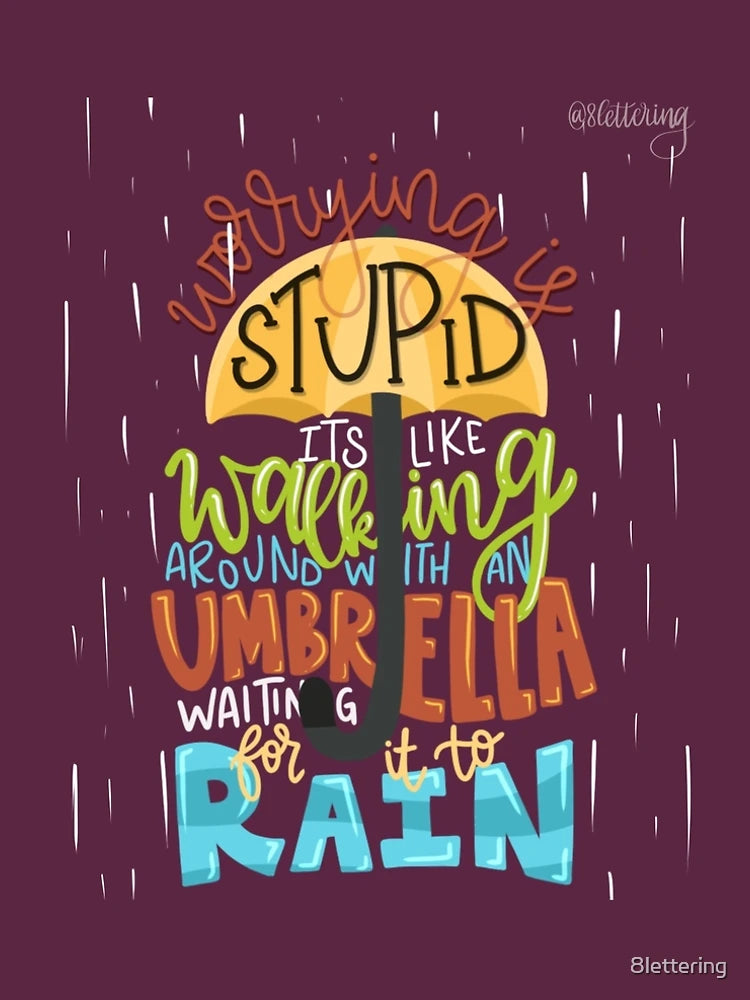 @8lettering
worrying is
STUPID
ITS LIKE
walking
AROUND WITH AN
UMBRELLA
WAITING
for it to
RAIN
8lettering